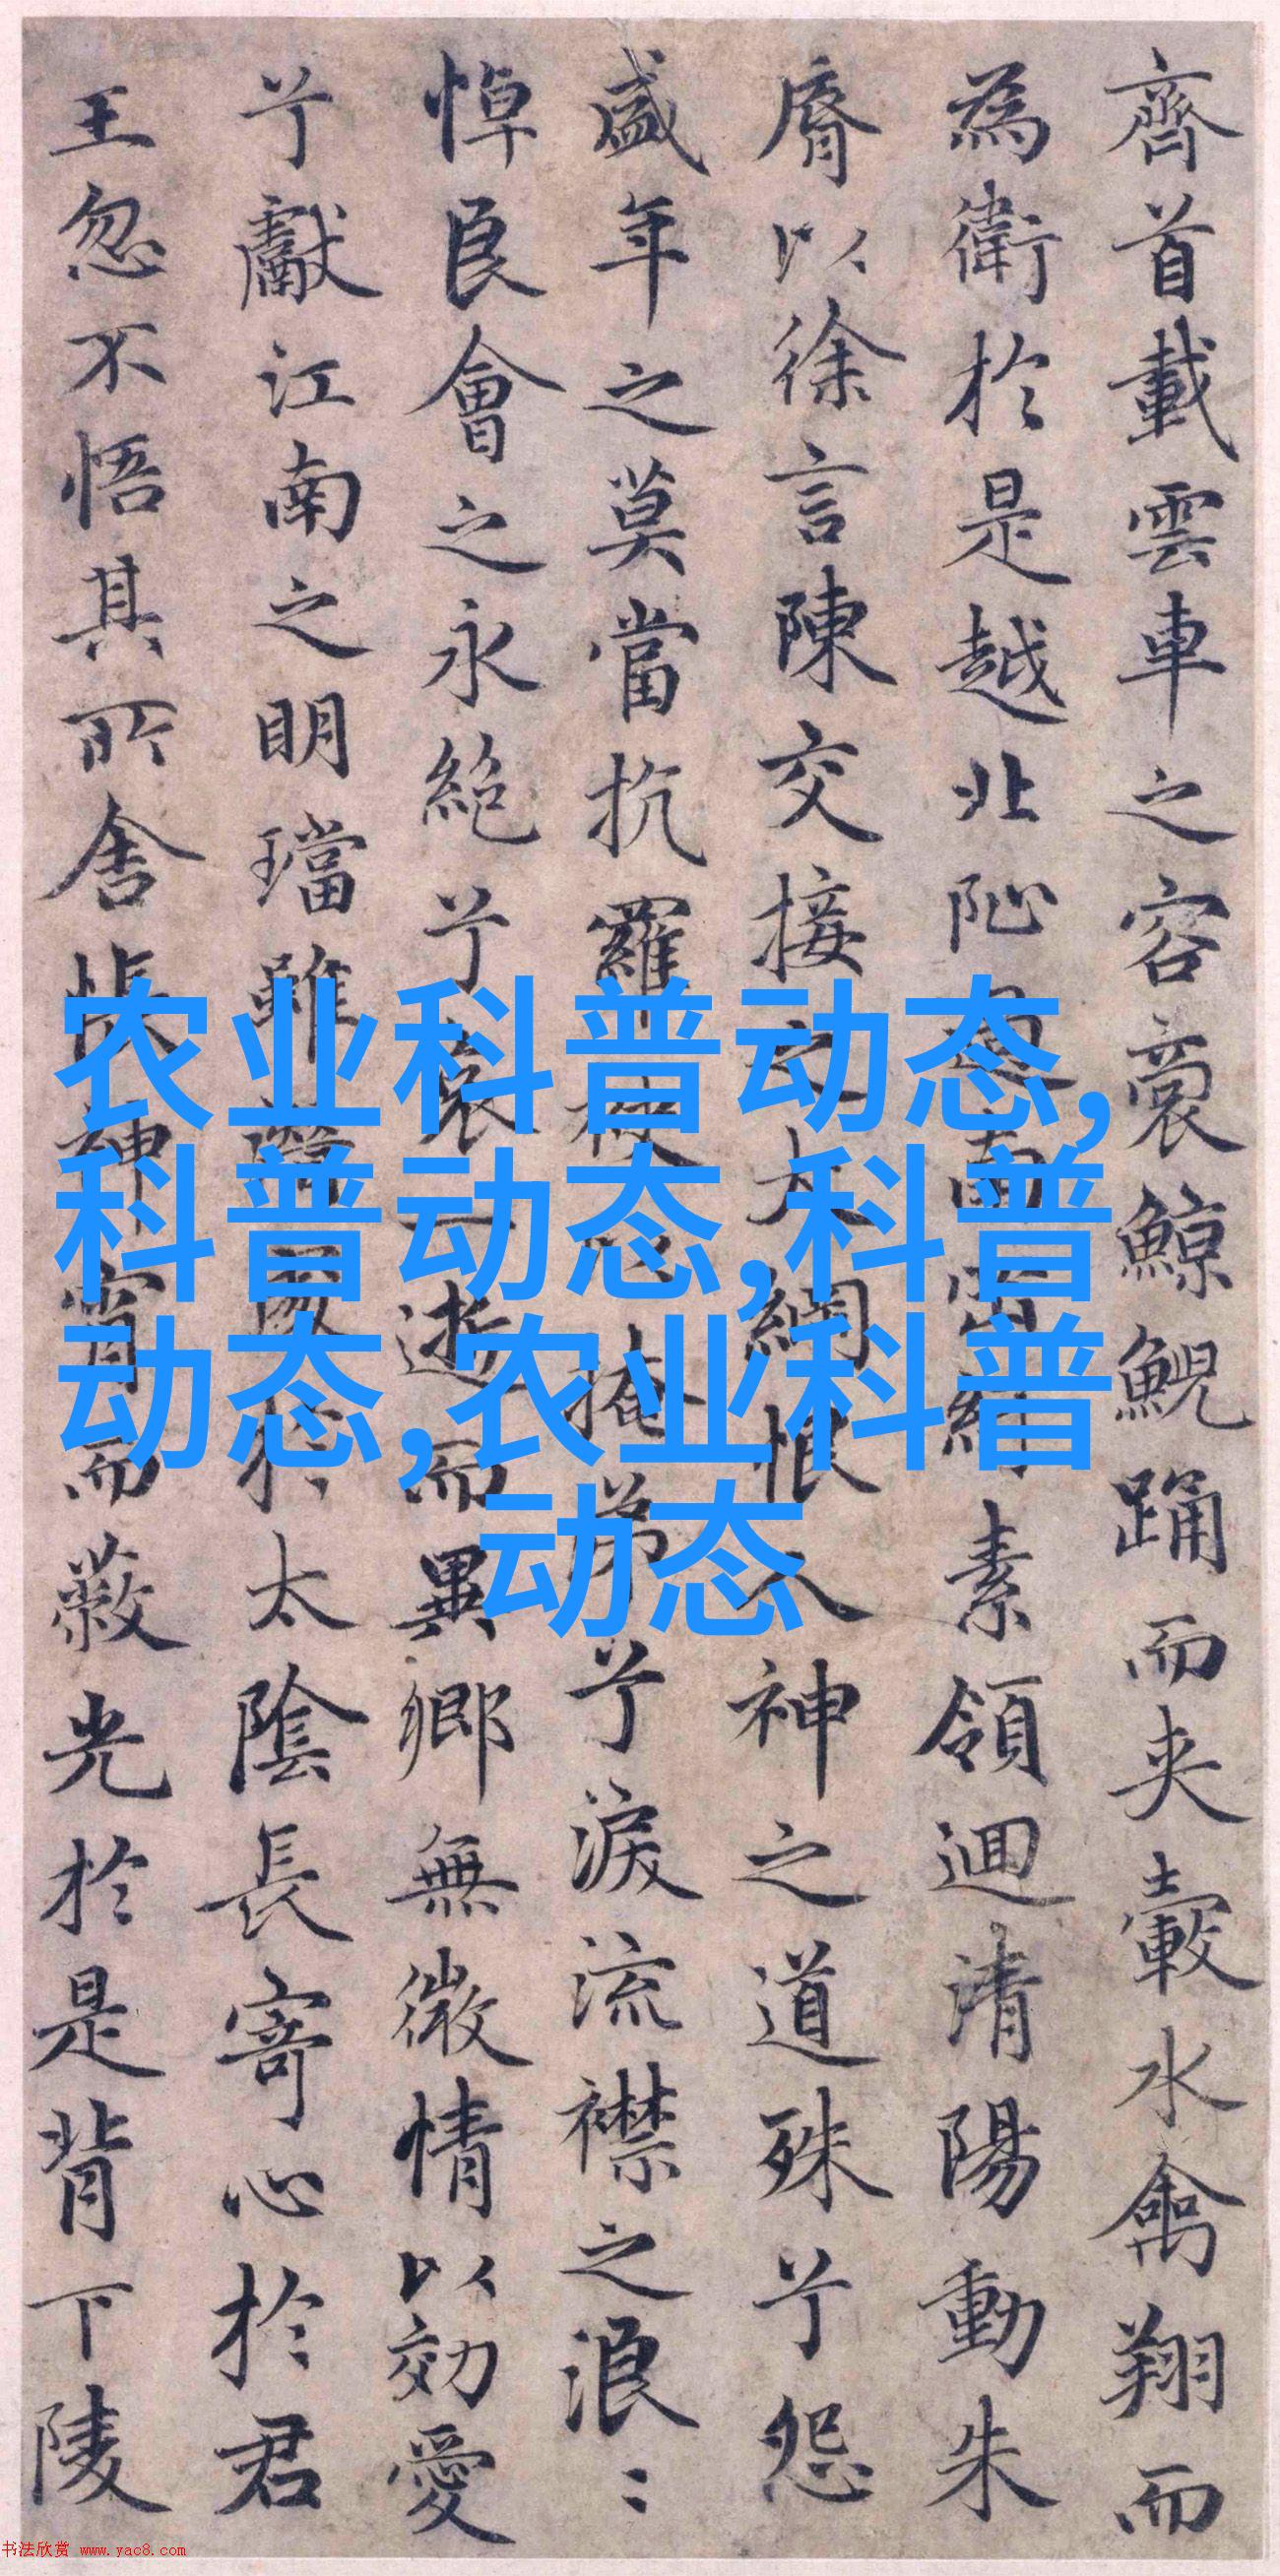 齊首載雲車之容裔鯨鯢踊而夾轂水禽翔而
為衛於是越北阯過南岡紆素領迴清陽動朱
脣以徐言陳交接之大綱恨人神之道殊兮怨
盛年之莫當抗羅袂以掩涕兮淚流襟之浪〻
悼良會之永絕兮哀一逝而異鄉無微情以効愛
兮獻江南之明璫雖潛處於太陰長寄心於君
王忽不悟其所舍悵神宵而蔽光於是背下陵
农业科普动态,
科普动态,科普
动态,农业科普
动态
书法欣赏 www.yac8.com